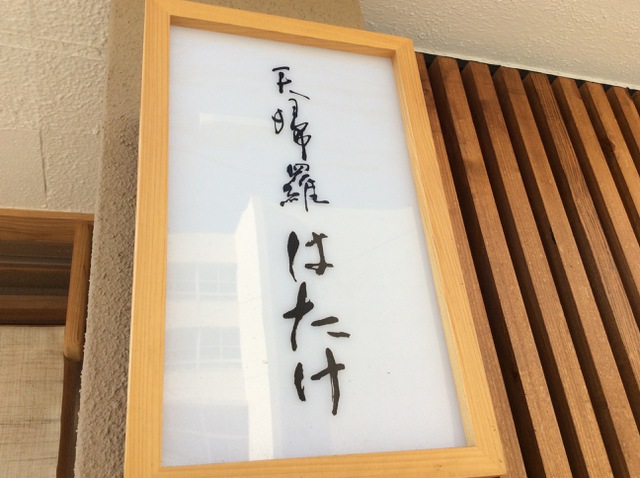 天婦羅はたけ